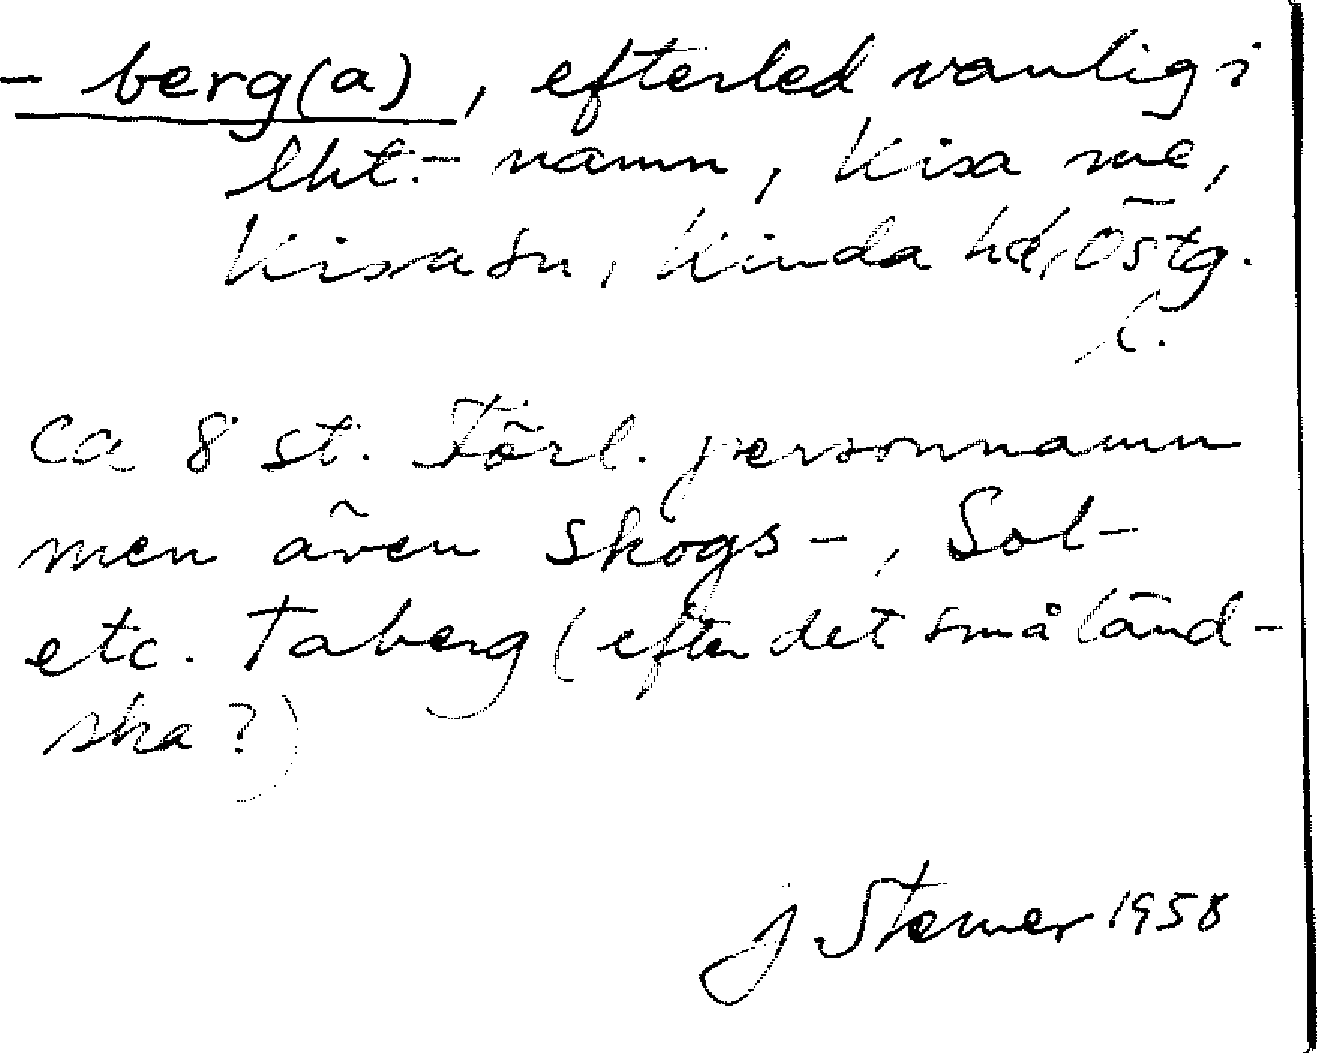 - berg(a), efterled vanlig i
lht.- namn, Kisa
Kisa sn, Kinda hd, Östg.
l.
Ca 8 st. Förl. personnamn
men även Skogs-, Sol-
etc. Taberg (efter det småländ-
ska?)
J Sterner 1958